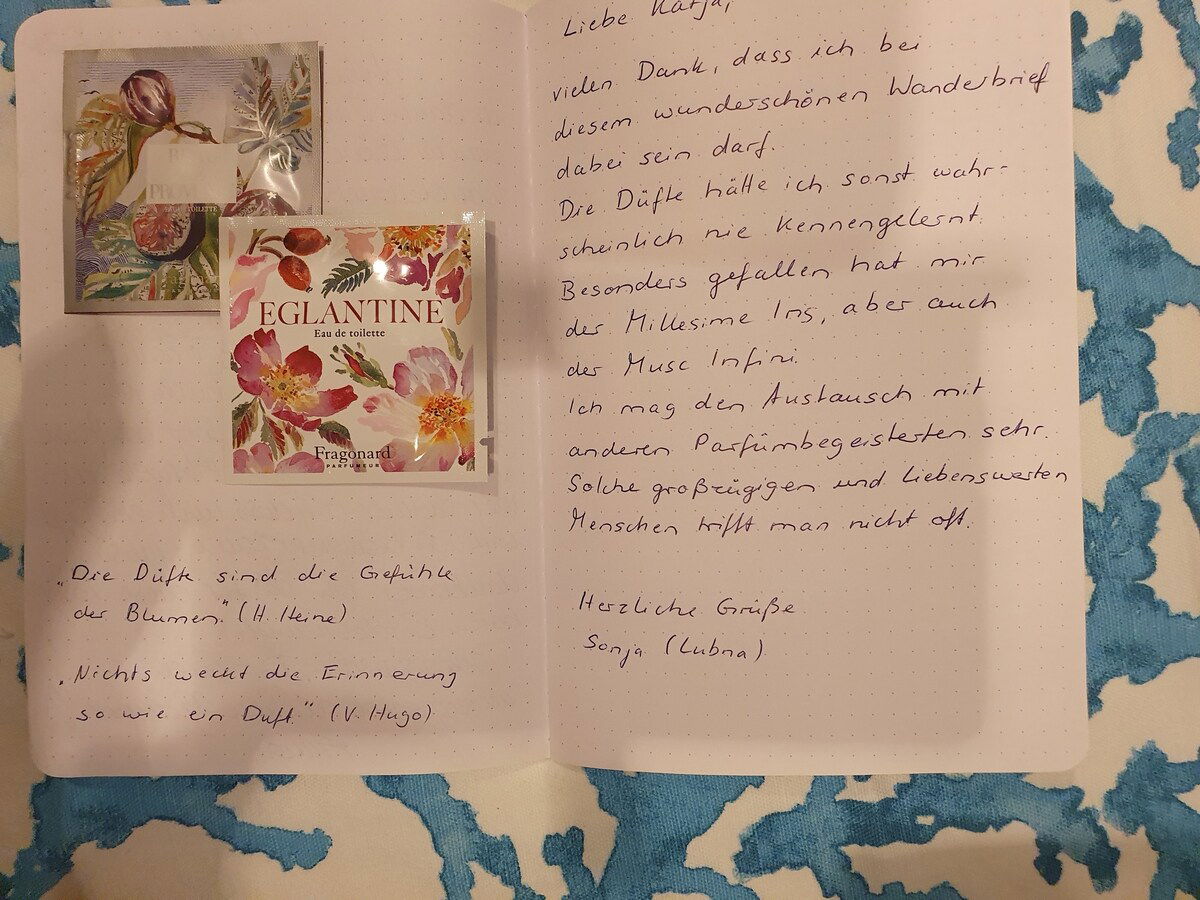 EAU DE TOILETTE
EGLANTINE
Eau de toilette
Fragonard
PARFUMEUR
„Die Düfte sind die Gefühle
der Blumen." (H. Heine)
„Nichts weckt die Erinnerung
so wie ein Duft." (V. Hugo)
Liebe Katja,
vielen Dank, dass ich bei
diesem wunderschönen Wanderbrief
dabei sein darf.
Die Düfte hätte ich sonst wahr-
scheinlich nie kennengelernt.
Besonders gefallen hat mir
der Millesime Iris, aber auch
der Musc Infini.
Ich mag den Austausch mit
anderen Parfümbegeisterten sehr.
Solche großzügigen und liebenswerten
Menschen trifft man nicht oft.
Herzliche Grüße
Sonja (Lubna)